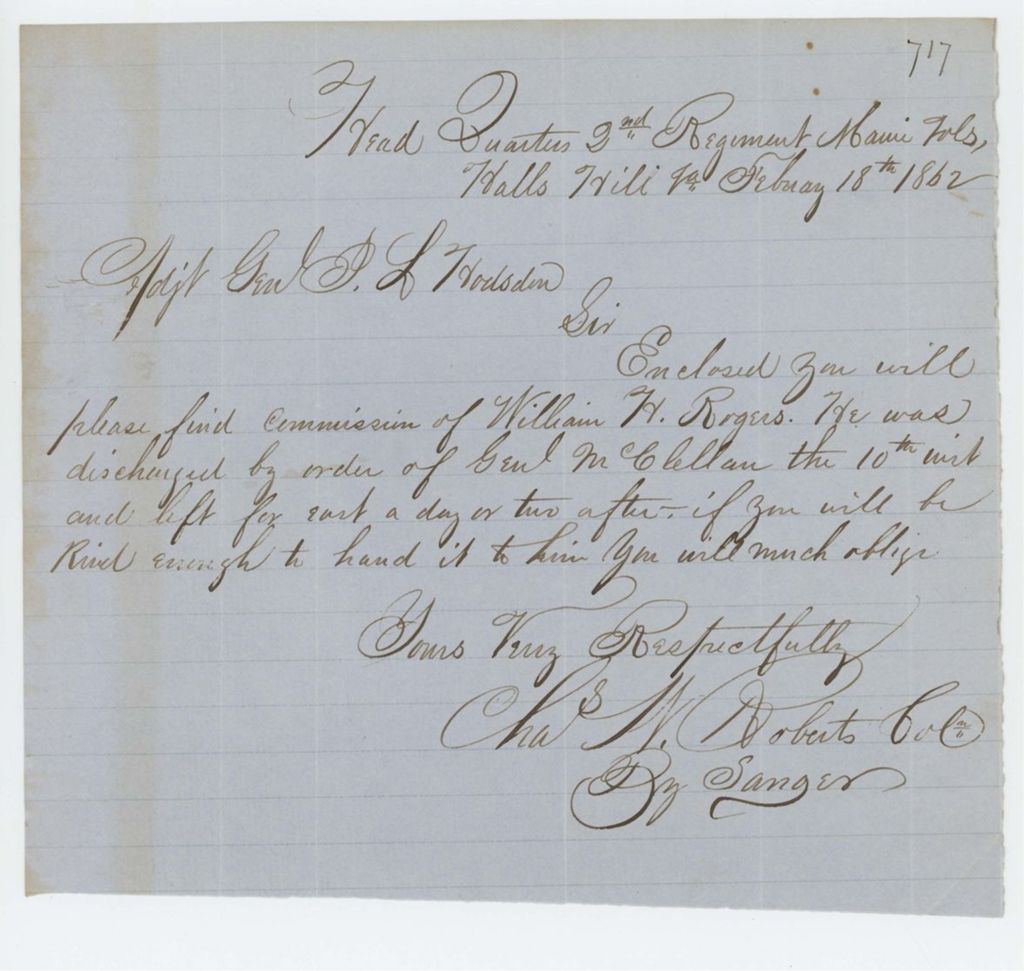 717
Head Quarters 2nd Regiment Maine Vols,
Halls Hill Va Febuay 18th 1862
Adjt Genl J. L Hodsdon
Sir
Enclosed you will
please find commission of William H. Rogers. He was
discharged by order of Genl McClellan the 10th inst
and left for east a day or two after - if you will be
kind enough to hand it to him You will much oblige
Yours Very Respectfully
Chas W. Roberts Coln
By Sanger